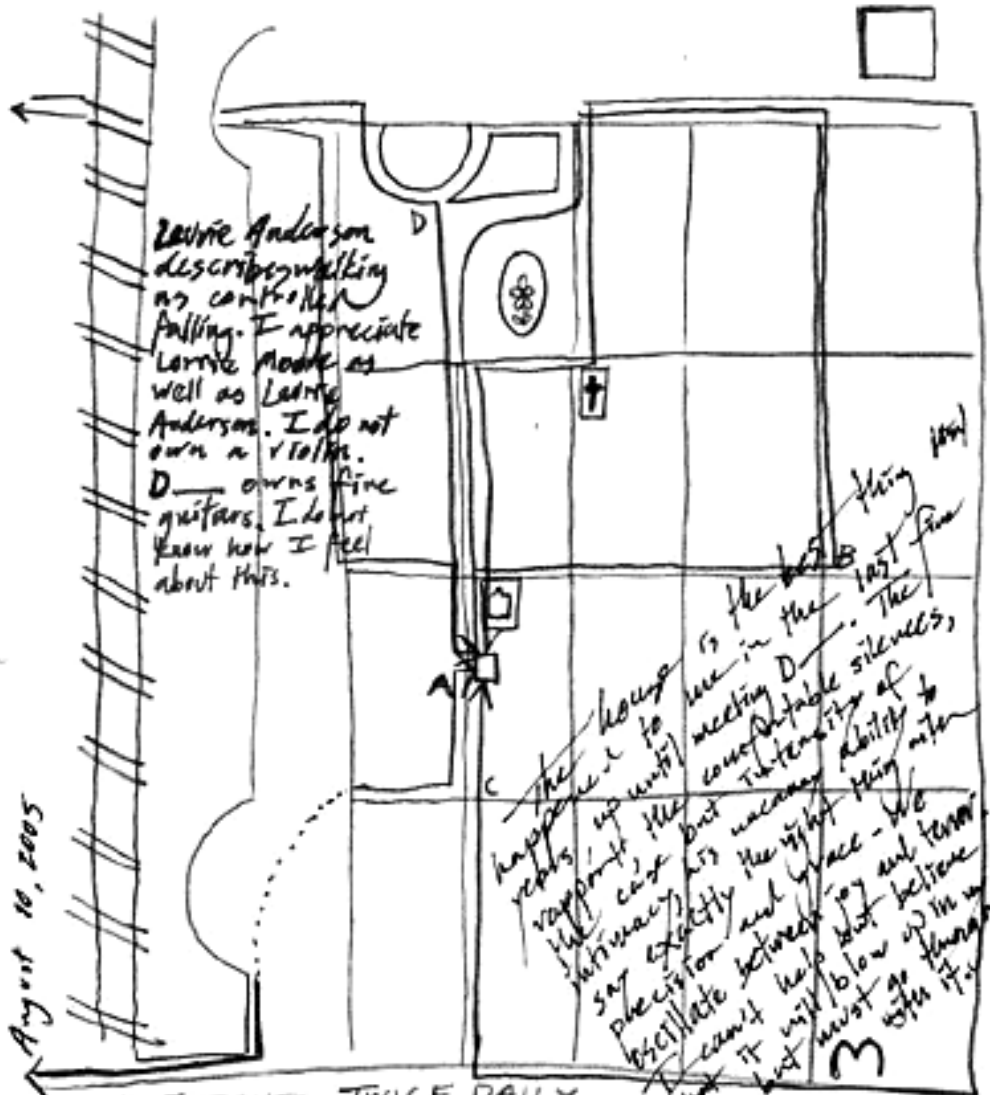 Laurie Anderson
describes walking
as controlled
falling. I appreciate
Lorrie Moore as
well as Laurie
Anderson. I do not
own a violin.
D— owns five
guitars. I do not
know how I feel
about this.
D
B
A
C
The house is the best thing
happened to me in the last five
years, up until meeting D—. The
rapport, the comfortable silences,
the easy but intensity of
intimacy, his uncanny ability to
say exactly the right thing with
precision and grace. We
oscillate between joy and terror.
I can't help but believe
it will blow up in
but must go
with it.
3
August 10, 2005
TWICE DAILY